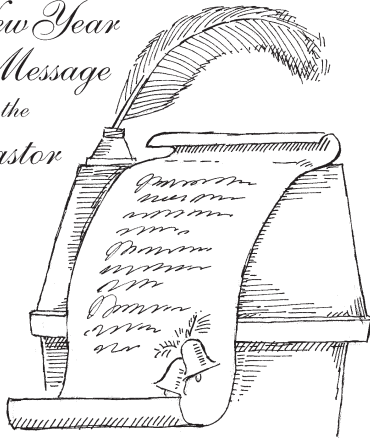 ew Year
Message
the
astor